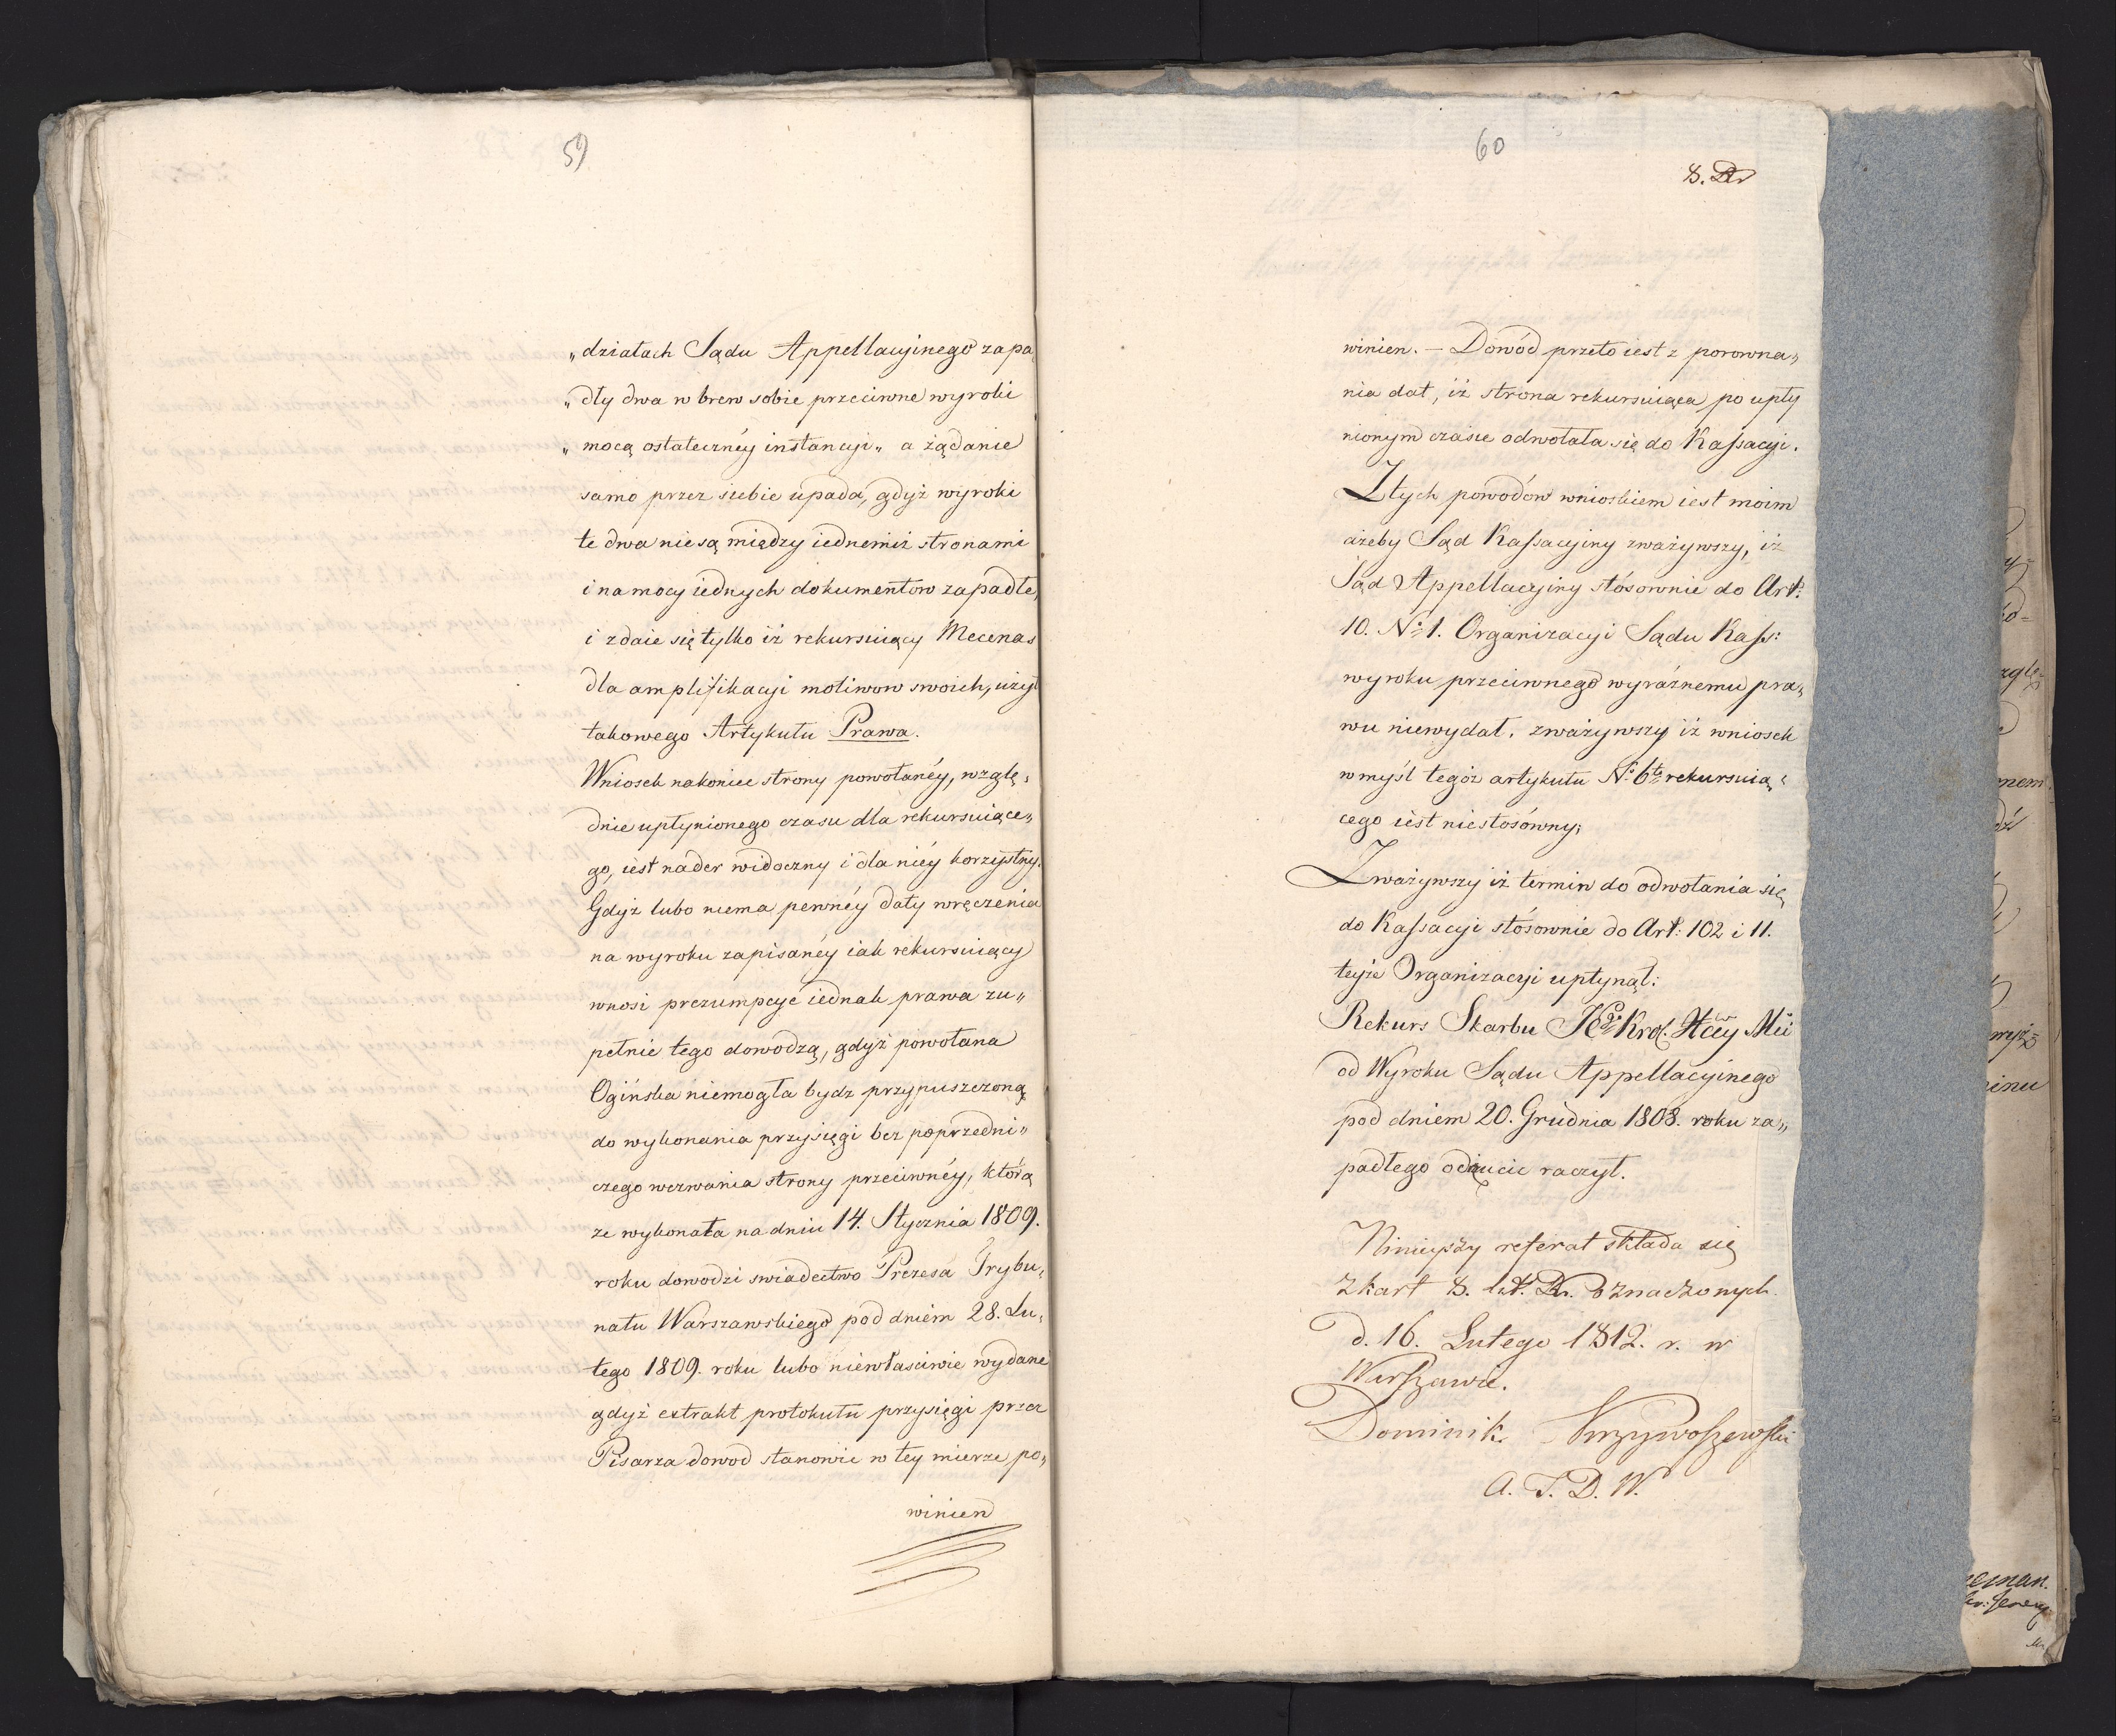 59
„działach Sądu Appellacyinego zapa„
„dły dwa w brew sobie przeciwne wyroki
„mocą ostateczney instancyi„ a żądanie
samo przez siebie upada, gdyż wyroki
te dwa nie są między iednemiż stronami
i na mocy iednych dokumentow zapadłe,
i zdaie się tylko iż rekursuiący Mecenas
dla amplifikacyi motiwow swoich, użył
takowego Artykułu Prawa.
Wniosek nakoniec strony powołaney, wzglę„
dnie upłynionego czasu dla rekursuiące„
go, iest nader widoczny i dla niey korzystny.
Gdyż lubo niema pewney daty wręczenia
na wyroku zapisaney iak rekursuiący
wnosi prezumpcye iednak prawa zu„
pełnie tego dowodzą, gdyż powołana
Ogińska niemogła bydz przypuszczoną
do wykonania przysięgi bez poprzedni„
czego wezwania strony przeciwney, którą
ze wykonała na dniu 14. Stycznia 1809.
roku dowodzi swiadectwo Prezesa Trybu„
nału Warszawskiego pod dniem 28. Lu„
tego 1809. roku lubo niewłasciwie wydane
gdyż extrakt protokułu przysięgi przez
Pisarza dowod stanowic w tey mierze po„
winien
60
8.
winien. — Dowód przeto iest z porowna„
nia dat, iż strona rekursuiąca po upły
nionym czasie odwołała się do Kassacyi.
Z tych powodów wnioskiem iest moim
ażeby Sąd Kassacyiny zważywszy, iż
Sąd Appellacyiny stósownie do Art:
10. No 1. Organizacyi Sądu Kass:
wyroku przeciwnego wyráznemu pra„
wu niewydał, zważywszy iż wniosek
w myśl tegóż artykułu No 6to rekursuią„
cego iest niestosówny;
Zważywszy iż termin do odwołania się
do Kassacyi stósownie do Art: 102 i 11.
teyże Organizacyi upłynął:
Rekurs Skarbu Kro.
od Wyroku Sądu Appellacyinego
pod dniem 20. Grudnia 1808. roku za„
padłego odrzucic raczył.
Ninieyszy referat składa się
z kart 8. lit. oznaczonych.
d. 16. Lutego 1812. r. w
Warszawie.
Dominik Krzywoszewski
A. S. D. W.